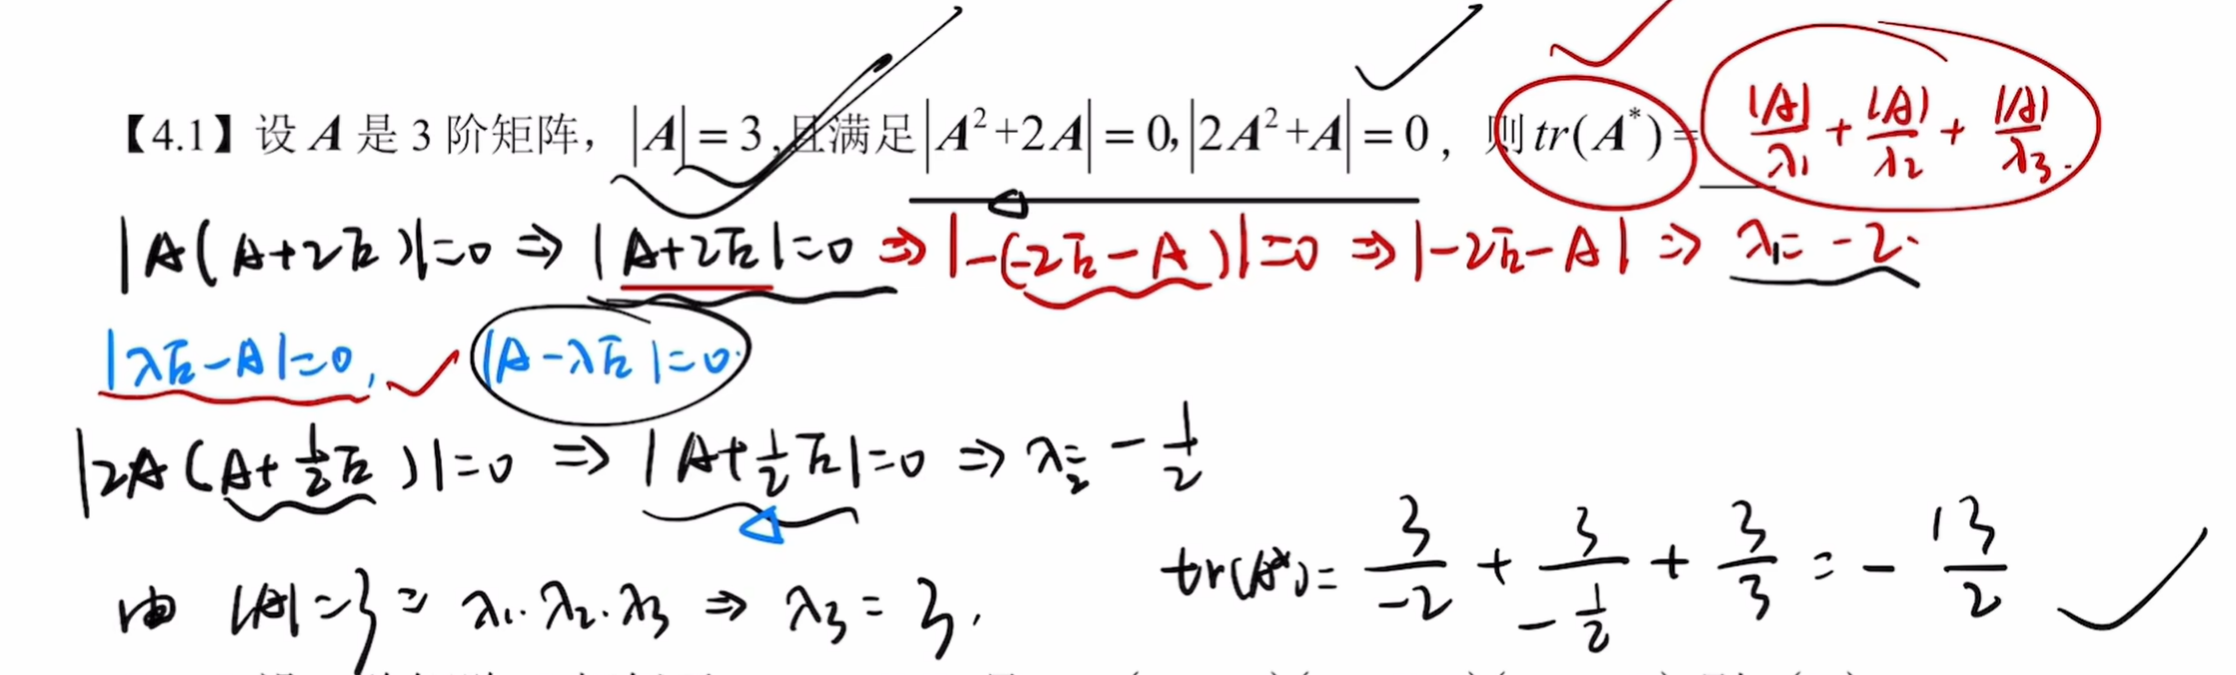 【4.1】设 A 是 3 阶矩阵，|A|=3,且满足|A²+2A|=0,|2A²+A|=0，则tr(A*)= |A|/λ₁ + |A|/λ₂ + |A|/λ₃.
|A(A+2E)|=0 ⇒ |A+2E|=0 ⇒ |-(-2E-A)|=0 ⇒ |-2E-A| ⇒ λ₁=-2.
|λE-A|=0, |A-λE|=0.
|2A(A+1/2E)|=0 ⇒ |A+1/2E|=0 ⇒ λ₂=-1/2
由 |A|=3=λ₁·λ₂·λ₃ ⇒ λ₃=3.
tr(A*)=3/-2 + 3/-1/2 + 3/3 = -13/2